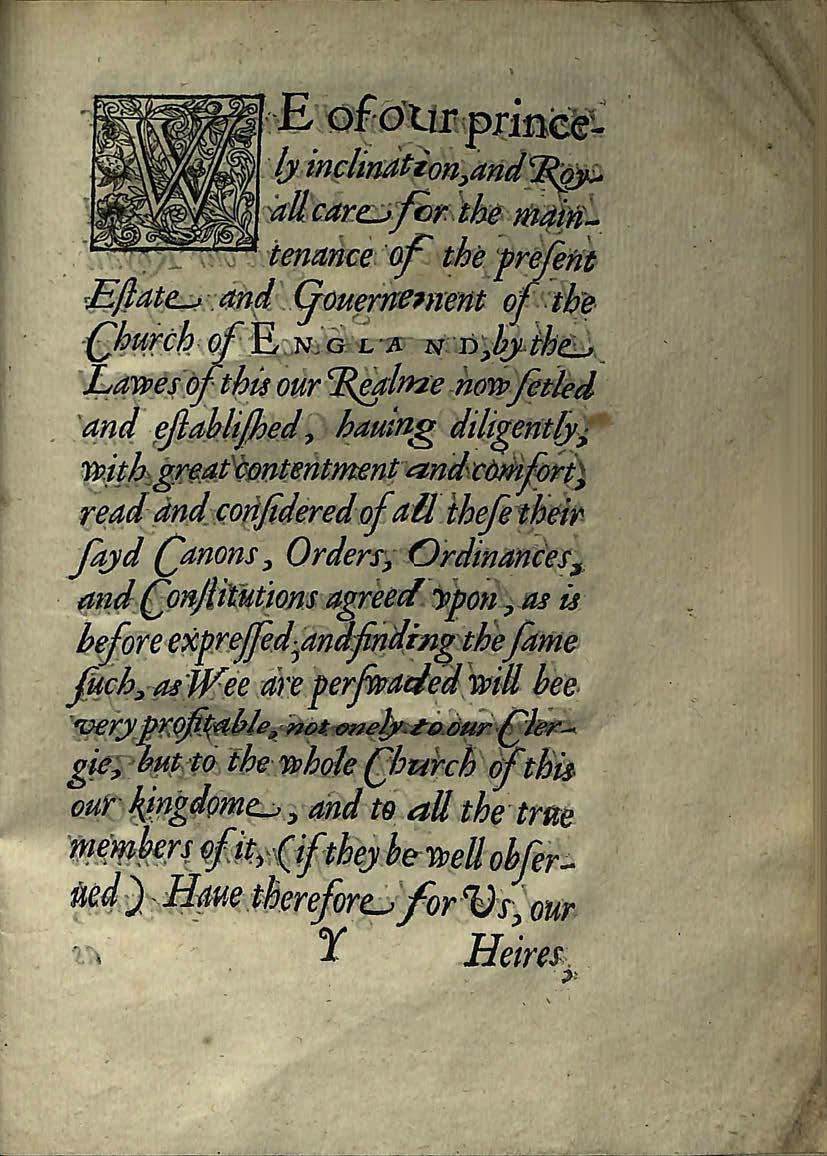 WE of our prince-
ly inclination, and Roy-
all care for the main-
tenance of the preſent
Eſtate and Gouernement of the
Church of ENGLAND, by the
Lawes of this our Realme now ſetled
and eſtabliſhed, hauing diligently,
with great contentment and comfort,
read and conſidered of all theſe their
ſayd Canons, Orders, Ordinances,
and Conſtitutions agreed vpon, as is
before expreſſed; and finding the ſame
ſuch, as Wee are perſwaded will bee
very profitable, not onely to our Cler-
gie, but to the whole Church of this
our kingdome, and to all the true
members of it, (if they be well obſer-
ued) Haue therefore for Vs, our
Y Heires,